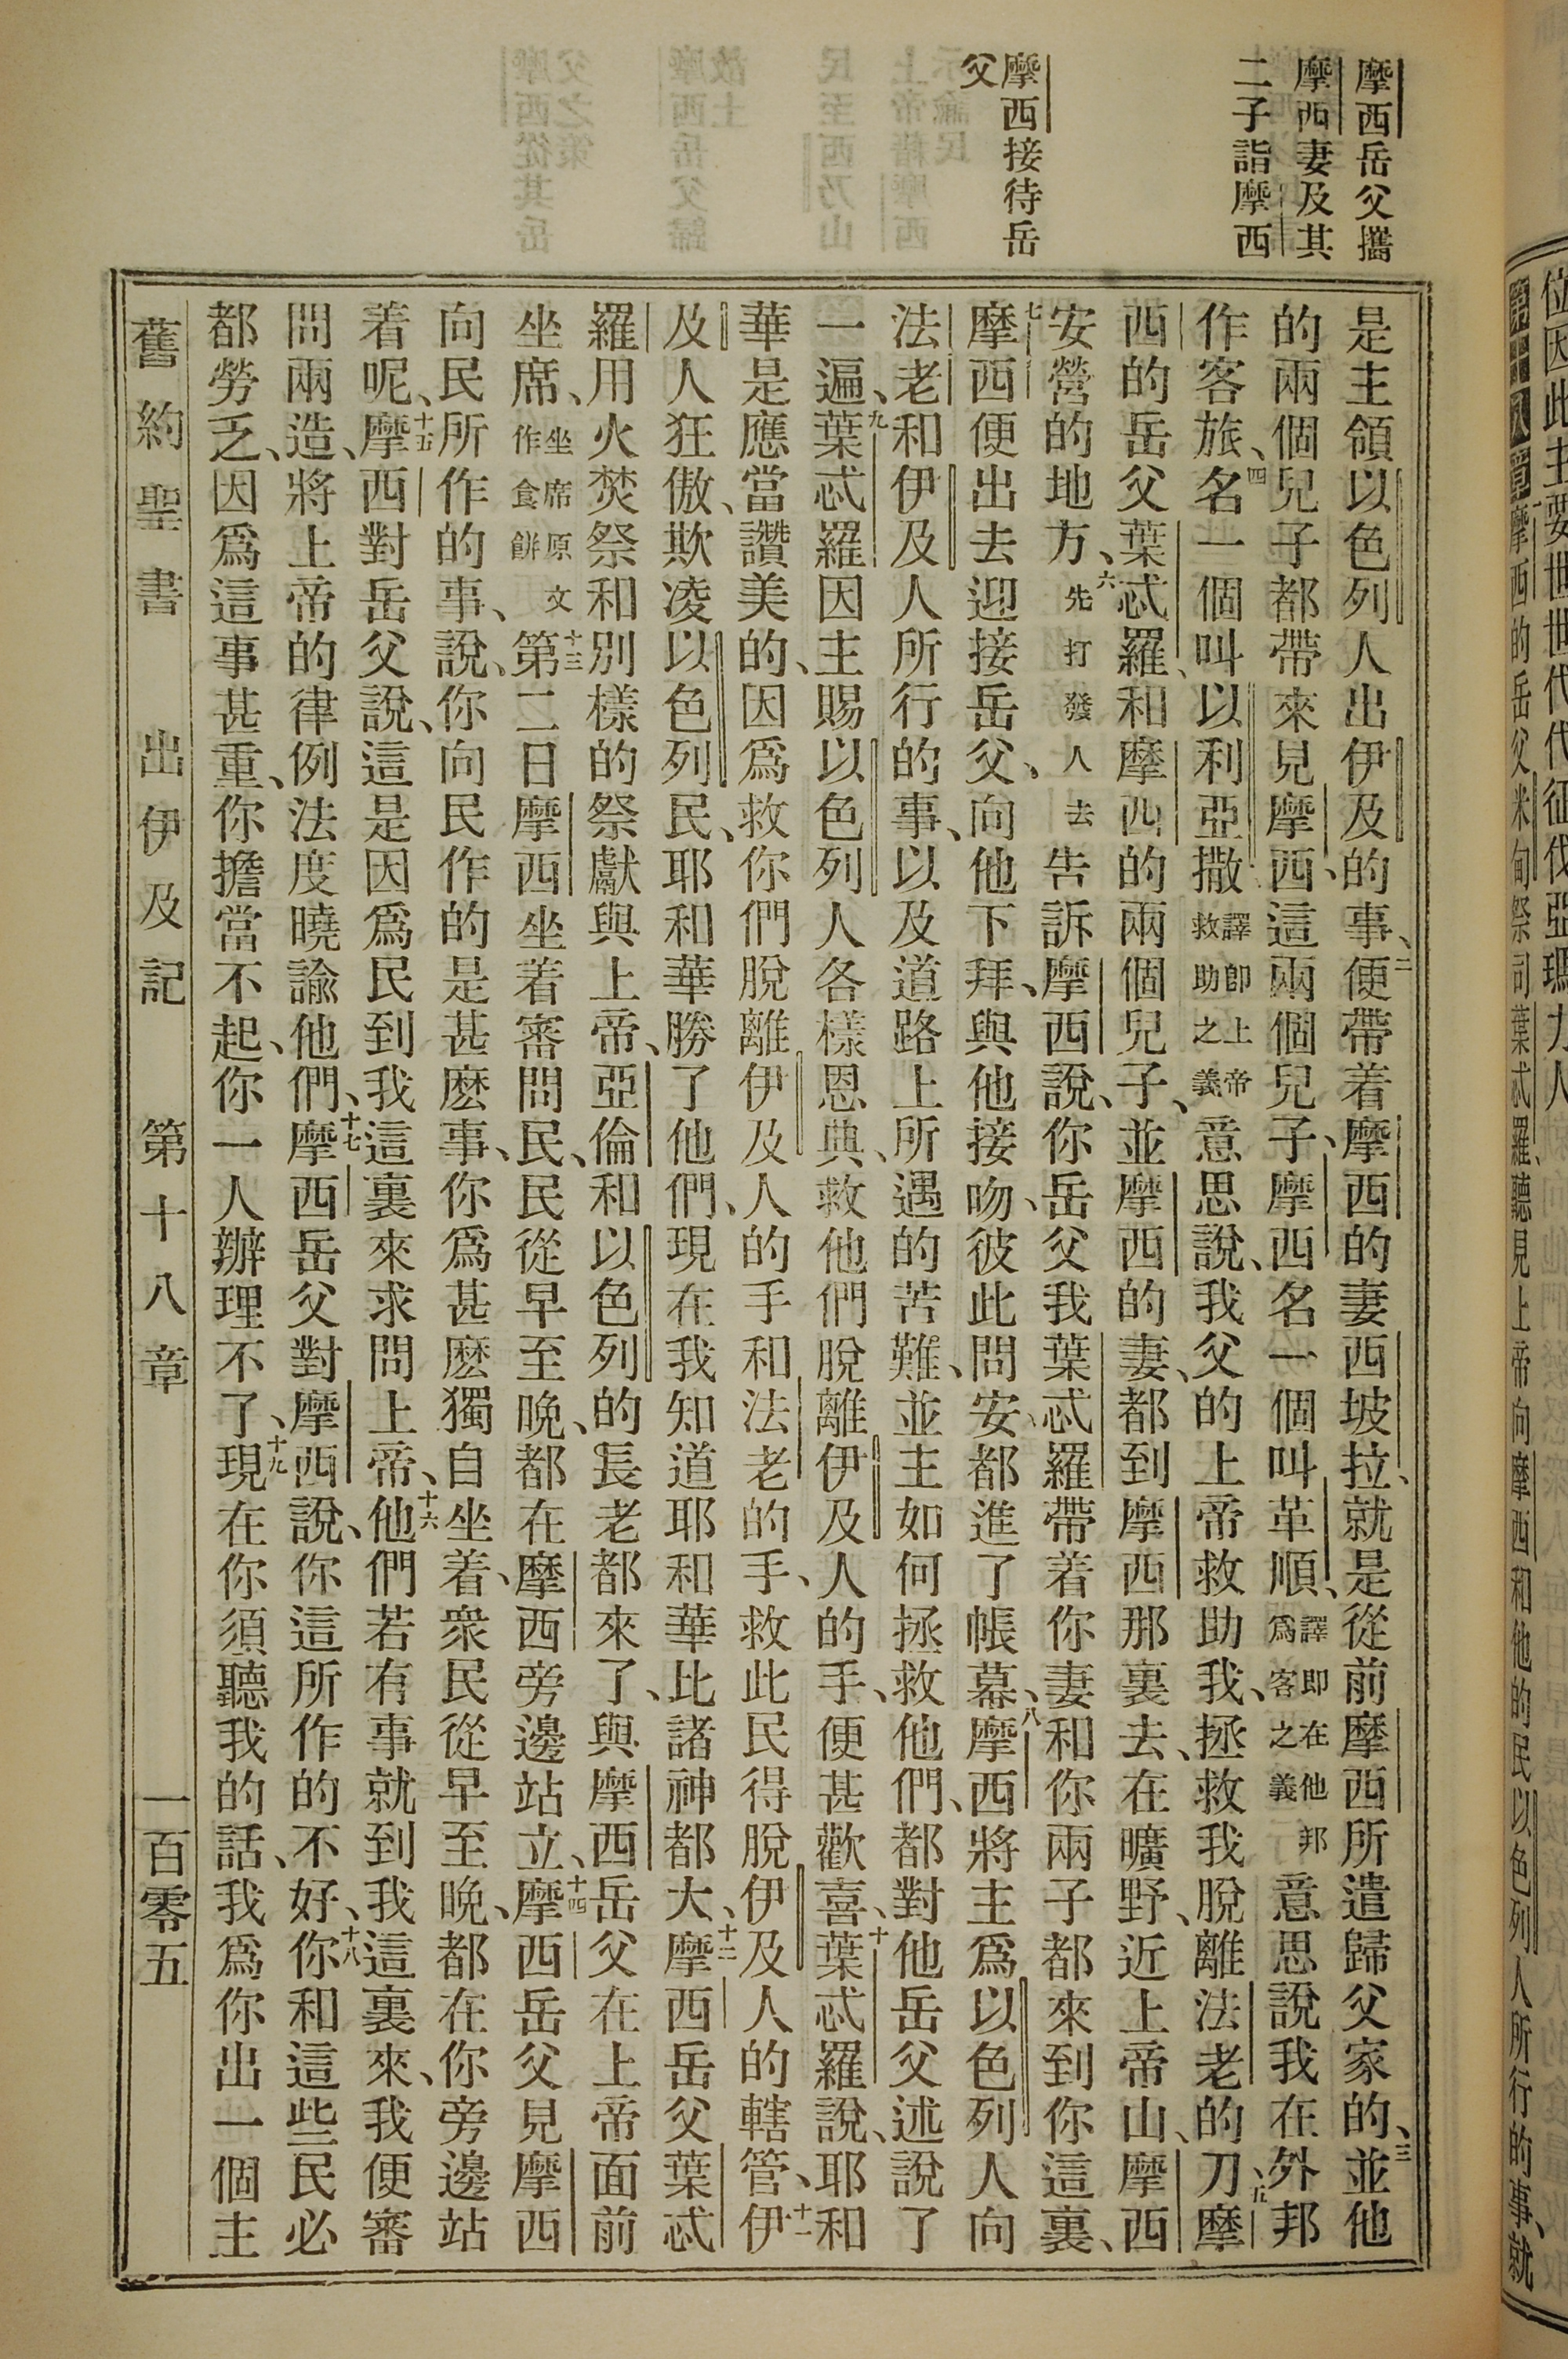 摩西岳父攜
摩西妻及其
二子詣摩西
摩西接待岳
父
是主領以色列人出伊及的事、二便帶着摩西的妻西坡拉、就是從前摩西所遣歸父家的、三並他
的兩個兒子都帶來見摩西、這兩個兒子、摩西名一個叫革順、譯卽在他邦爲客之義意思說我在外邦
作客旅、四名一個叫以利亞撒、譯卽上帝救助之義意思說、我父的上帝救助我、拯救我脫離法老的刀、五摩
西的岳父葉忒羅、和摩西的兩個兒子、並摩西的妻、都到摩西那裏去、在曠野、近上帝山、摩西
安營的地方、六先打發人去告訴摩西說、你岳父我葉忒羅帶着你妻和你兩子都來到你這裏、
七摩西便出去迎接岳父、向他下拜、與他接吻、彼此問安、都進了帳幕、八摩西將主爲以色列人向
法老和伊及人所行的事、以及道路上所遇的苦難、並主如何拯救他們、都對他岳父述說了
一遍、九葉忒羅因主賜以色列人各樣恩典、救他們脫離伊及人的手、便甚歡喜、十葉忒羅說、耶和
華是應當讚美的、因爲救你們脫離伊及人的手和法老的手、救此民得脫伊及人的轄管、十一伊
及人狂傲、欺凌以色列民、耶和華勝了他們、現在我知道耶和華比諸神都大、十二摩西岳父葉忒
羅用火焚祭和別樣的祭獻與上帝、亞倫和以色列的長老都來了、與摩西岳父在上帝面前
坐席、坐席原文作食餅十三第二日摩西坐着審問民、民從早至晚、都在摩西旁邊站立、十四摩西岳父見摩西
向民所作的事、說、你向民作的是甚麽事、你爲甚麽獨自坐着、衆民從早至晚、都在你旁邊站
着呢、十五摩西對岳父說、這是因爲民到我這裏來求問上帝、十六他們若有事就到我這裏來、我便審
問兩造、將上帝的律例法度曉諭他們、十七摩西岳父對摩西說、你這所作的不好、十八你和這些民必
都勞乏、因爲這事甚重、你擔當不起、你一人辦理不了、十九現在你須聽我的話、我爲你出一個主
舊約聖書 出伊及記 第十八章 一百零五